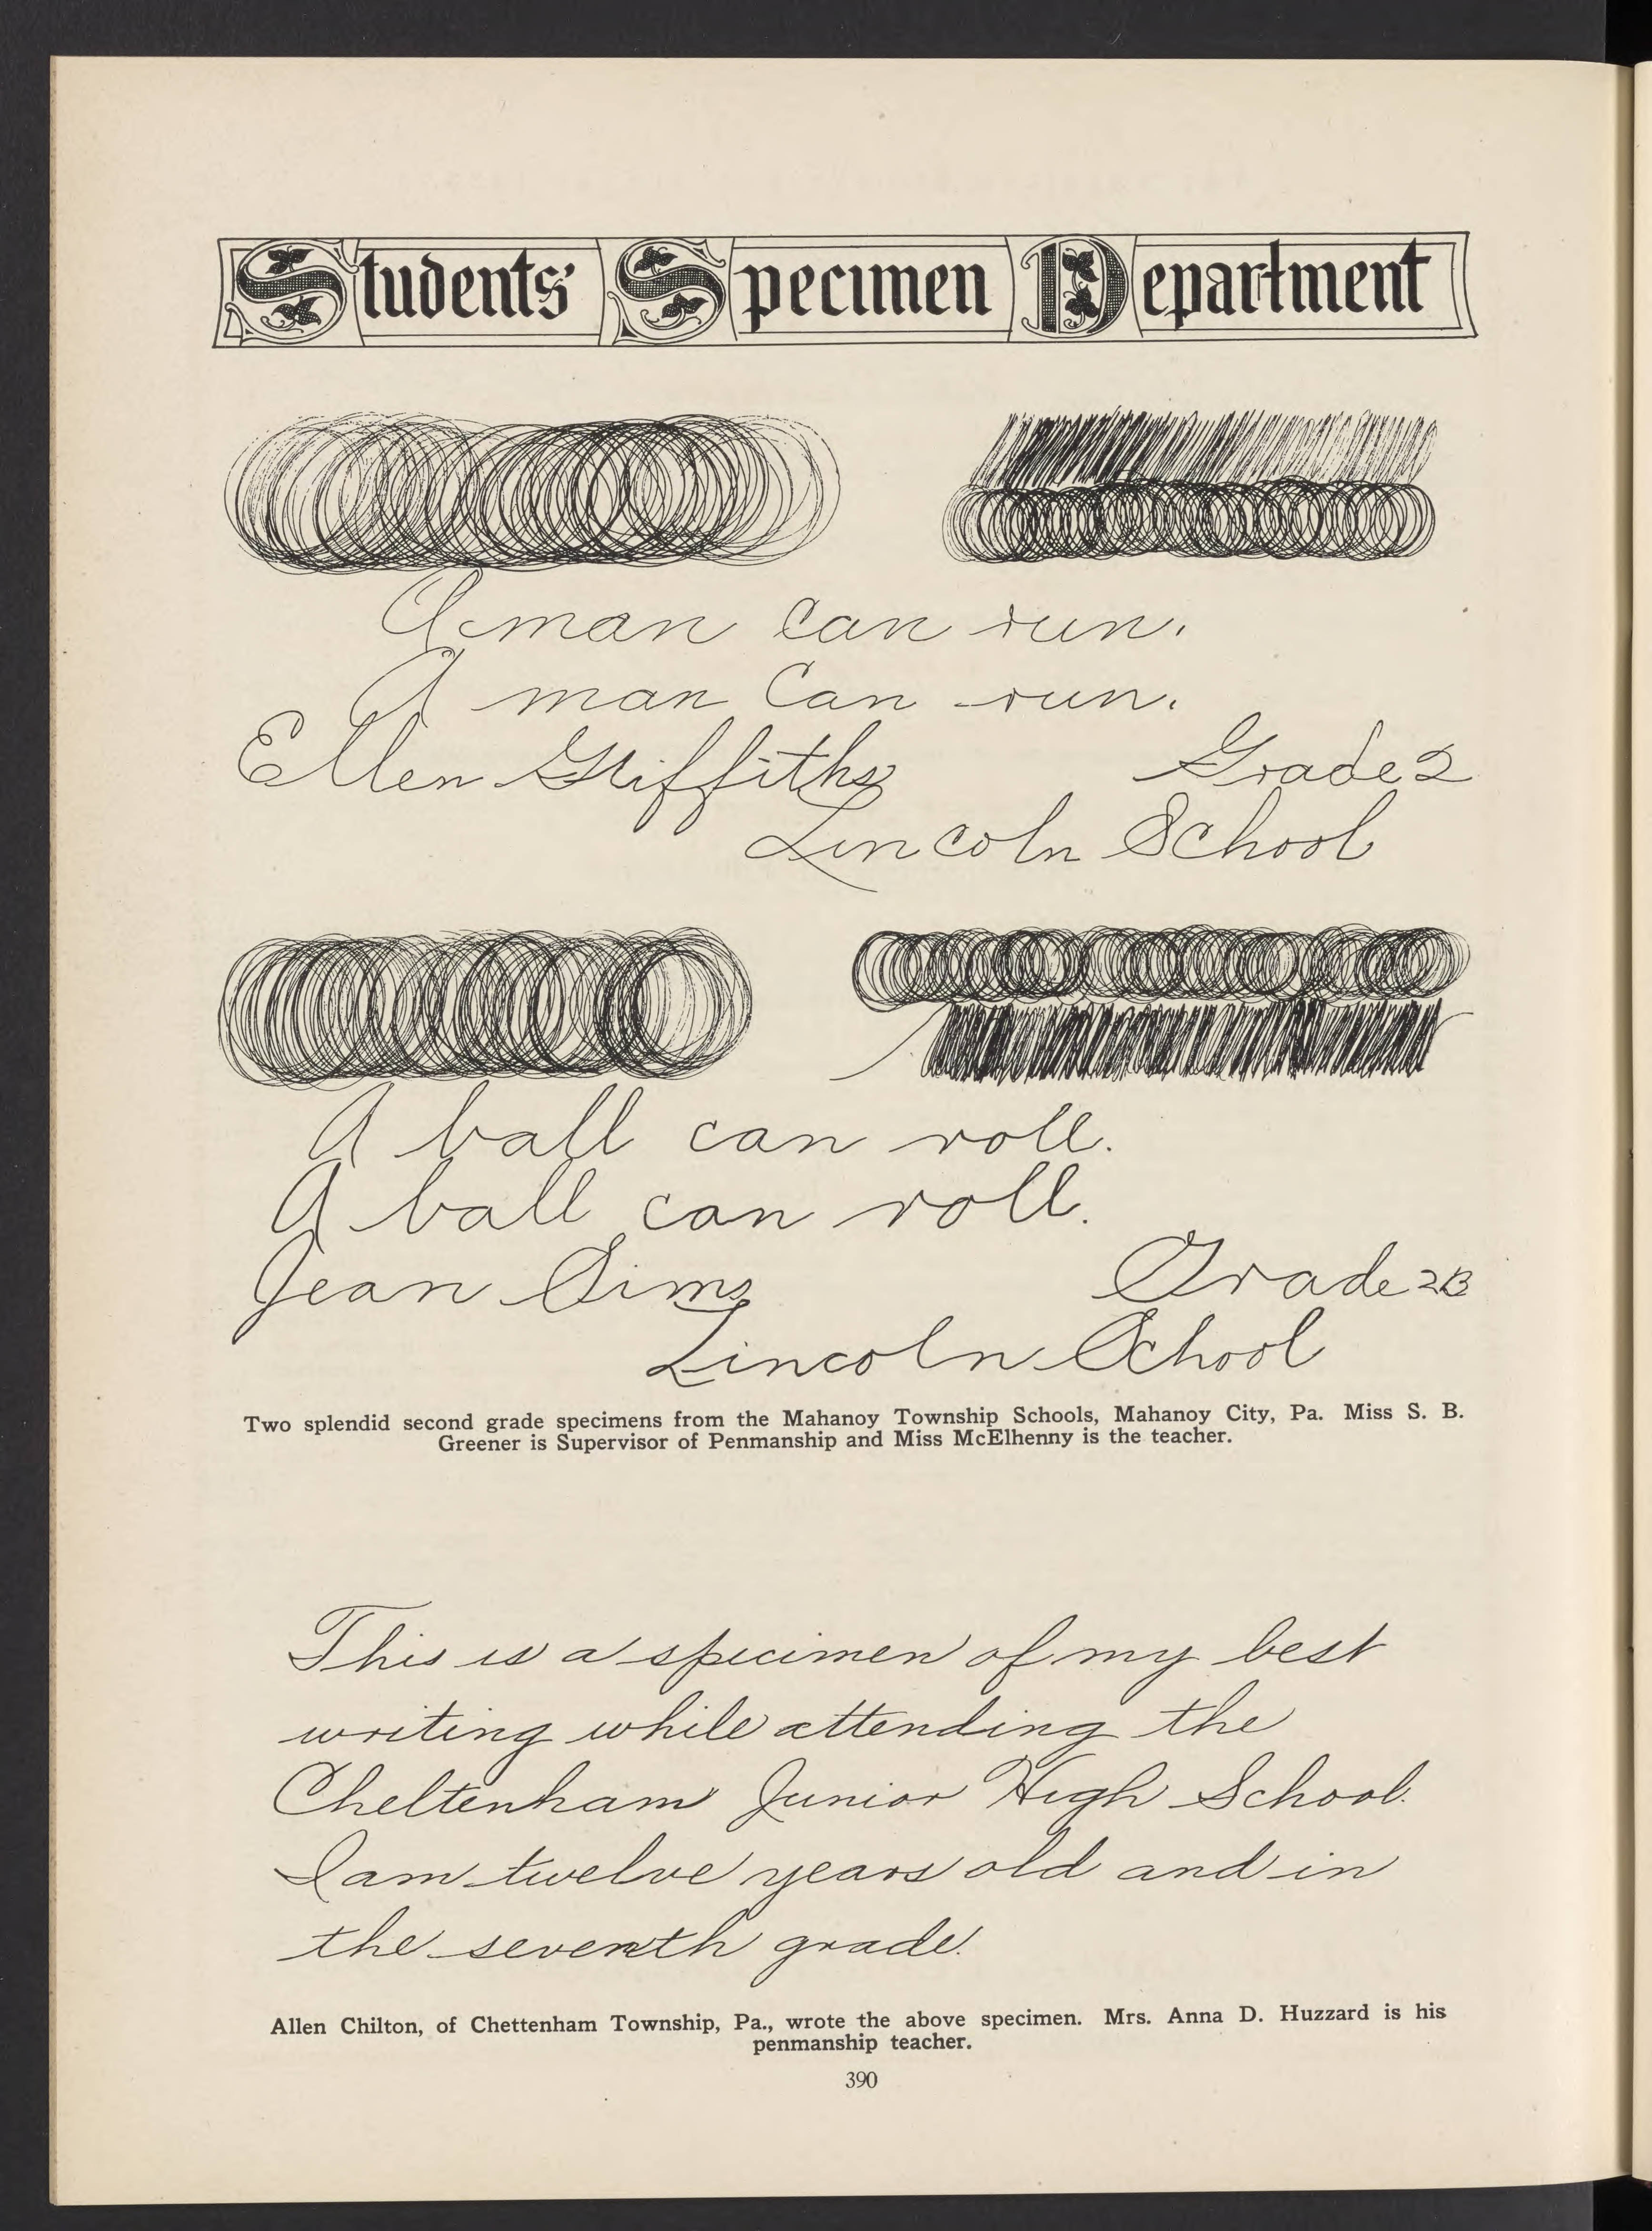 Students' Specimen Department
A man can run.
A man Can run.
Ellen Griffiths Grade 2
Lincoln School
A ball can roll.
A ball can roll.
Jean Sims Grade 2B
Lincoln School
Two splendid second grade specimens from the Mahanoy Township Schools, Mahanoy City, Pa. Miss S. B.
Greener is Supervisor of Penmanship and Miss McElhenny is the teacher.
This is a specimen of my best
writing while attending the
Cheltenham Junior High School.
I am twelve years old and in
the seventh grade.
Allen Chilton, of Chettenham Township, Pa., wrote the above specimen. Mrs. Anna D. Huzzard is his
penmanship teacher.
390